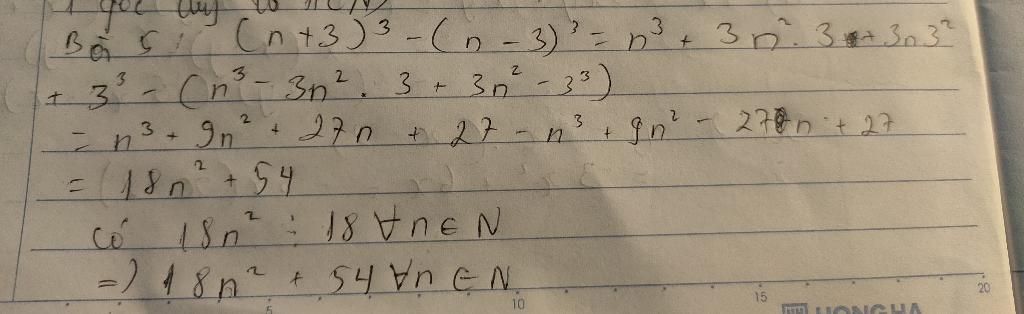 Bài 5: (n+3)³ - (n - 3)³ = n³ + 3n². 3 + 3n3²
+ 3³ - (n³ - 3n². 3 + 3n² - 3³)
= n³ + 9n² + 27n + 27 - n³ + 9n² - 27n + 27
= 18n² + 54
Có 18n² ⋮ 18 ∀n ∈ N
=) 18n² + 54 ∀n ∈ N
5 10 15 20
HONG HA